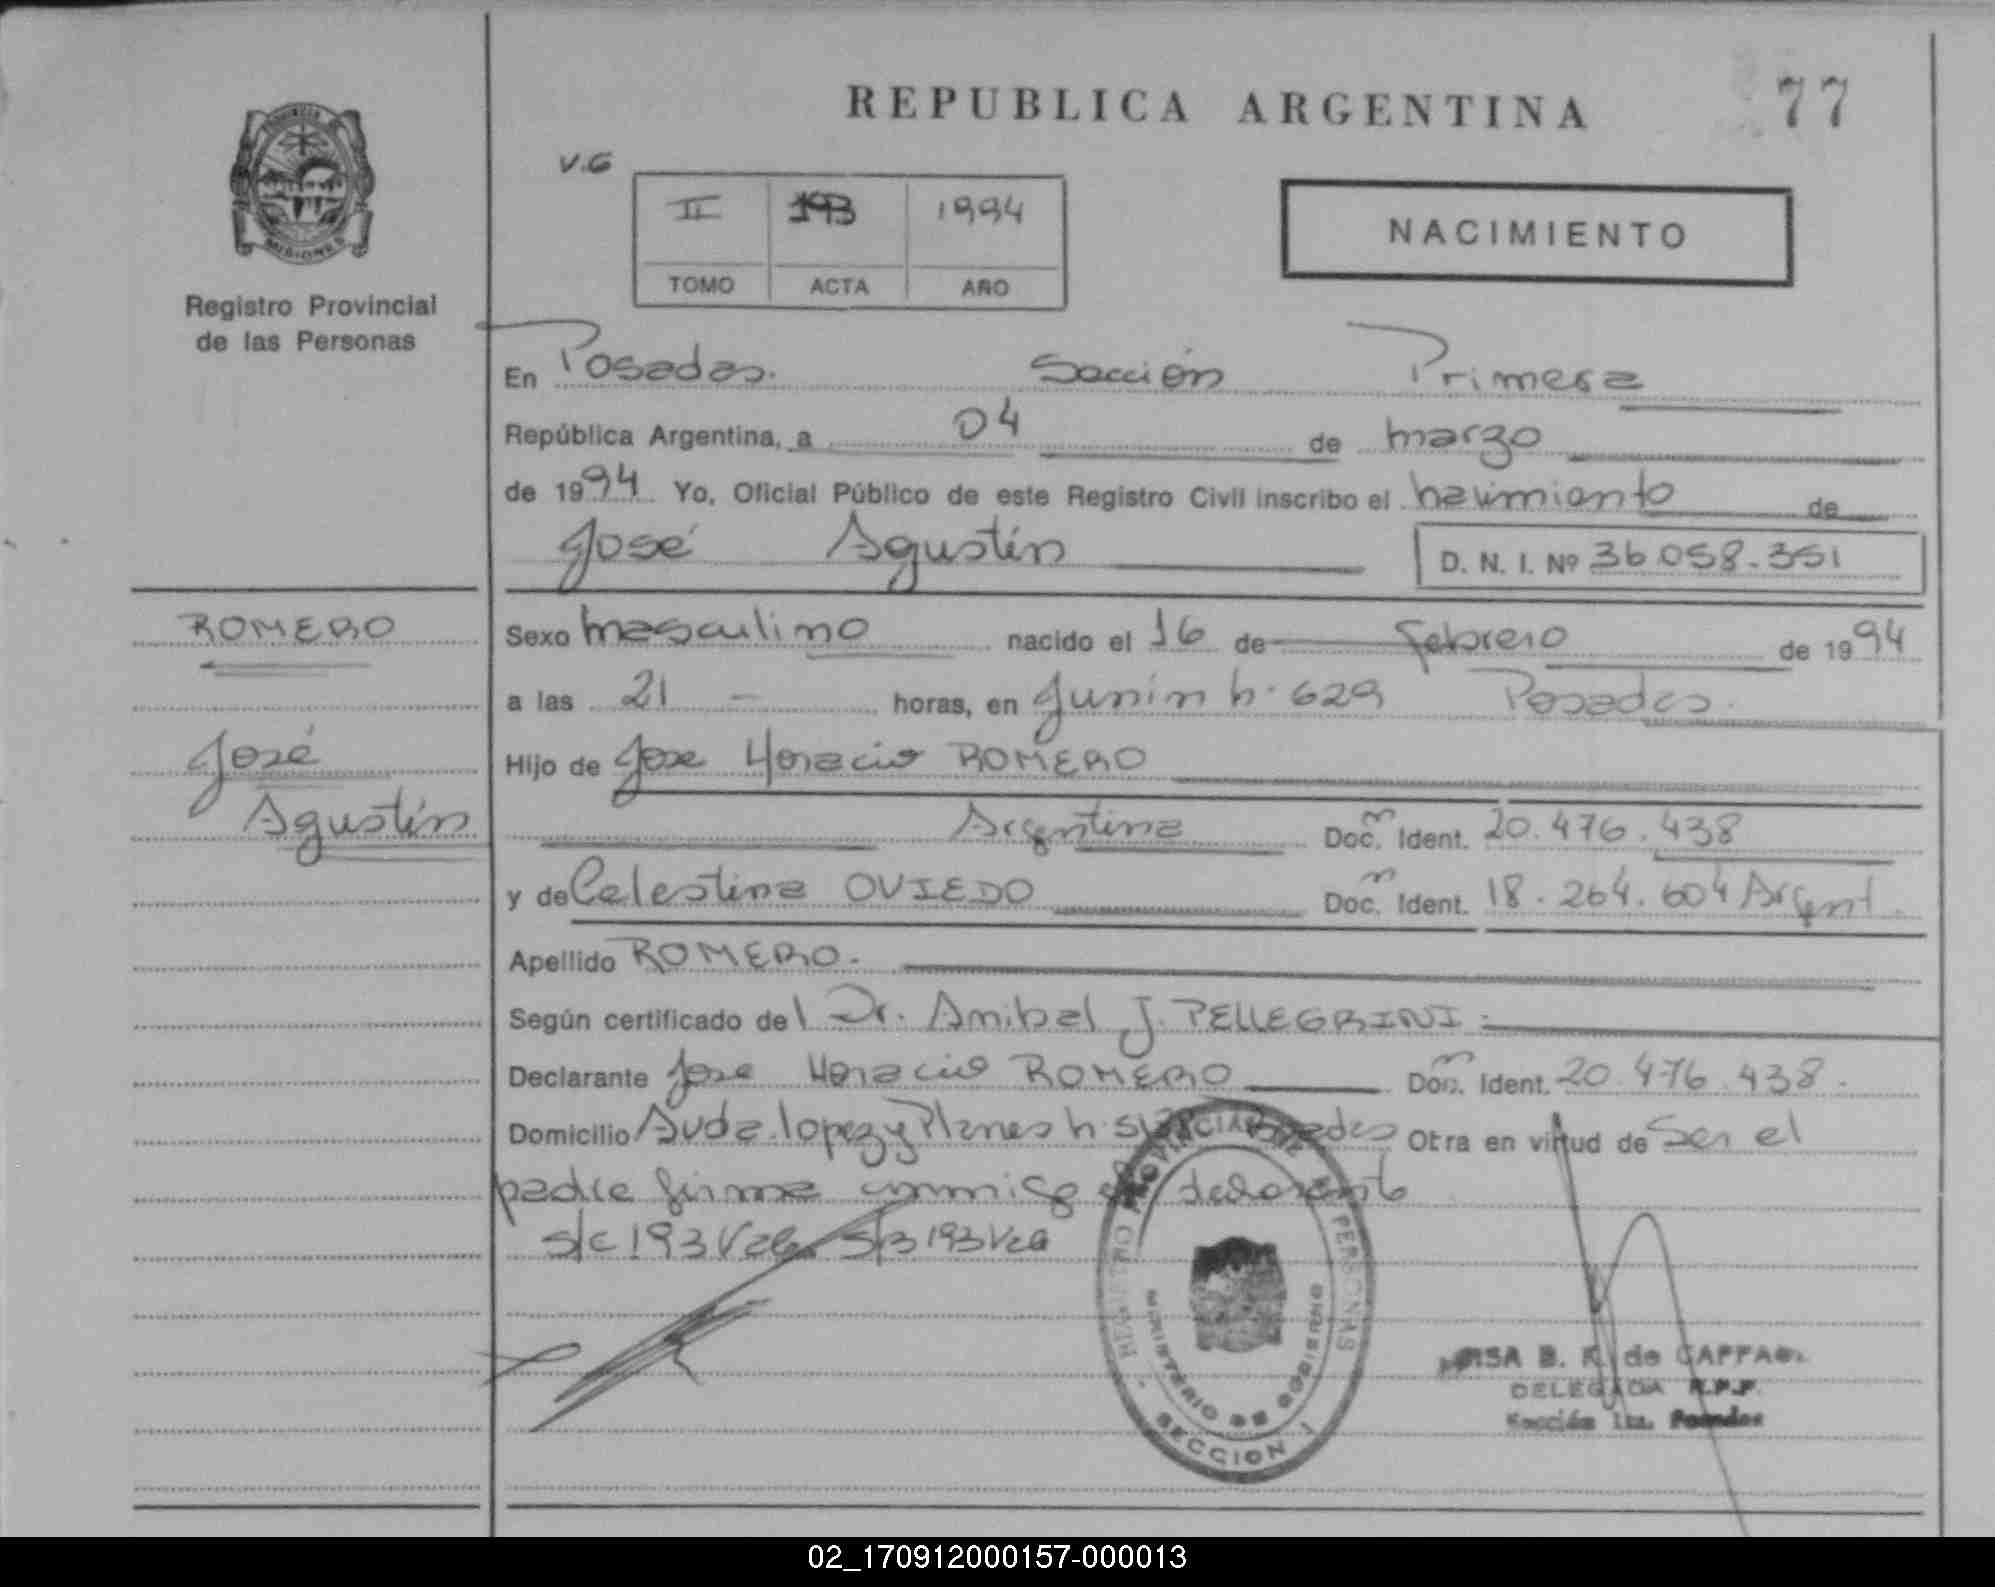 REPUBLICA ARGENTINA
77
V.G
II 193 1994
TOMO ACTA AÑO
NACIMIENTO
PROVINCIA DE
MISIONES
Registro Provincial
de las Personas
En Posadas. Sección Primera
República Argentina, a 04 de marzo
de 1994 Yo, Oficial Público de este Registro Civil inscribo el nacimiento de
José Agustín
D. N. I. Nº 36.058.351
ROMERO
José
Agustín
Sexo masculino nacido el 16 de febrero de 1994
a las 21 - horas, en Junín n. 629 Posadas.
Hijo de Jose Horacio ROMERO
Argentina Doc. Ident. 20.476.438
y de Celestina OVIEDO Doc. Ident. 18.264.604 Argent.
Apellido ROMERO.
Según certificado del Dr. Anibal J. PELLEGRINI.
Declarante Jose Horacio ROMERO Doc. Ident. 20.476.438.
Domicilio Avda. lopez y Planes n. Posadas Otra en virtud de Ser el
padre firma conmigo el declarante
s/c 193 Vale s/b 193 Vale
REGISTRO PROVINCIAL DE LAS PERSONAS
MINISTERIO DE GOBIERNO
SECCION 1
B. K. de
DELEGADA R.P.P.
Sección 1ra. Posadas
02_170912000157-000013